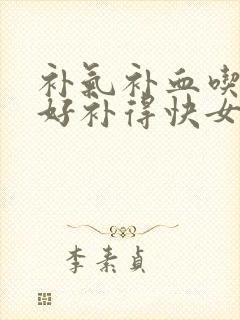 补氣补血喫
好补得快女
李素貞